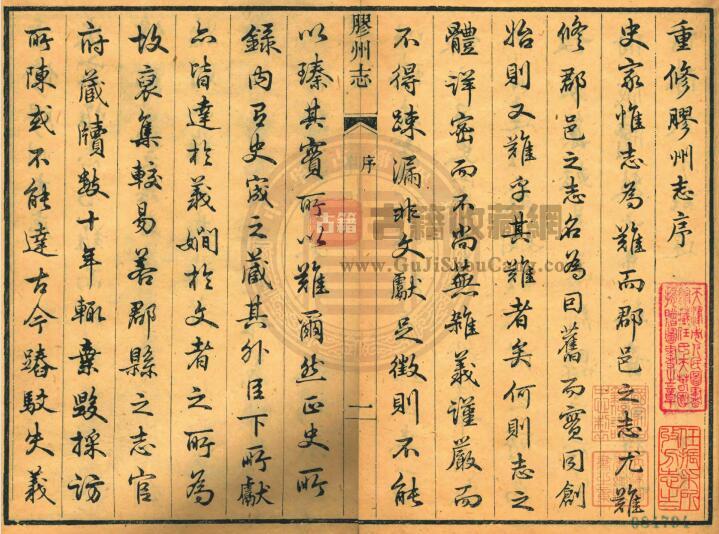 重修膠州志序
史家惟志為難而郡邑之志尤難
修郡邑之志名為因舊而實同創
始則又難乎其難者矣何則志之
體詳密而不尚蕪雜義謹嚴而
不得疎漏非文獻足徵則不能
膠州志
序
一
以臻其實所以難爾然正史所
錄內有史宬之藏其外臣下所獻
亦皆達於義嫺於文者之所為
故裒集較易若郡縣之志官
府藏牘數十年輒棄毀採訪
所陳或不能達古今踳駁失義
古籍
古籍收藏網
www.GuJiShouCang.com